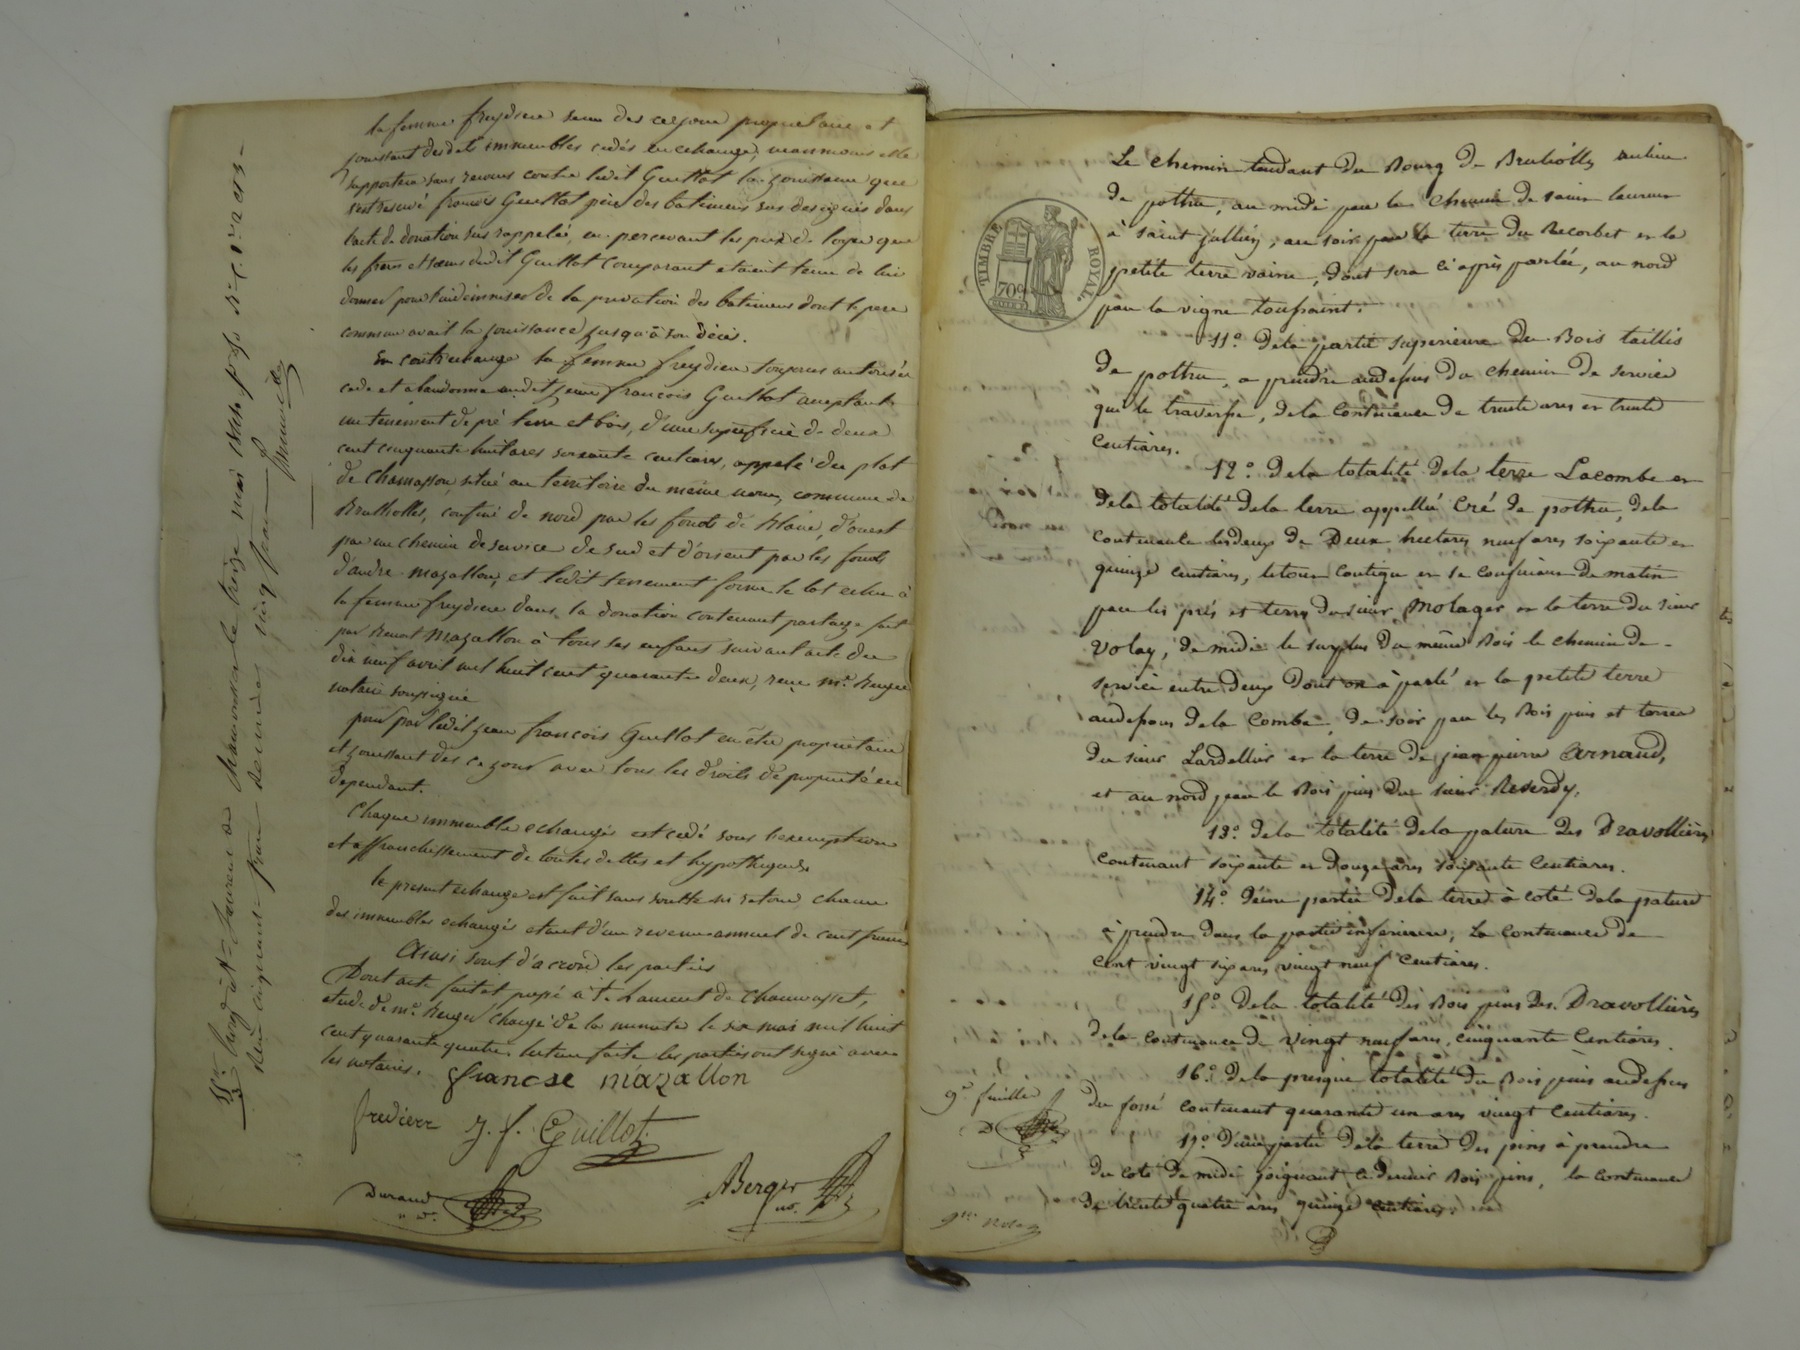 la femme freydiere sera des ce jour proprietaire et
jouissant desdits immeubles cedés en echange, neanmoins elle
supportera sans recours contre ledit Guillot la jouissance que
s'est reservé françois Guillot père des batimens sus designés dans
l'acte de donation sus rappelée, en percevant les prix de loyer que
les freres et sœurs dudit Guillot comparant etaient tenu de lui
donner pour l'indemniser de la privation des batimens dont le pere
commun avait la jouissance jusqu'à son décès.
En contr'echange la femme freydiere toujours autorisée
cede et abandonne audit jean françois Guillot acceptant
un tenement de pré terre et bois, d'une superficie de deux
cent cinquante huit ares soixante centiares, appelé du plat
de Chamasson, situé au territoire du même nom, commune de
Brullioles, confiné de nord par les fonds de Blain, d'ouest
par un chemin de service de sud et d'orient par les fonds
d'andre Mazallon, et ledit tenement forme le lot echu à
la femme freydiere dans la donation contenant partage fait
par Benoit Mazallon à tous ses enfans suivant acte du
dix neuf avril mil huit cent quarante deux, reçu Me Berger
notaire soussigné
pour par ledit jean françois Guillot en être proprietaire
et jouissant des ce jour avec tous les droits de propriété en
dependant.
Chaque immeuble echangés est cedé sous l'exemption
et affranchissement de toutes dettes et hypotheques.
le present echange est fait sans soulte ni retour, chacun
des immeubles echangés etant d'un revenu annuel de cent francs
Ainsi sont d'accord les parties
Dont acte fait et passé à St Laurent de Chamousset,
etude de Me Berger chargé de la minute le six mai mil huit
cent quarante quatre. lecture faite les parties ont signé avec
les notaires.
françse mazallon
fredierr J. f. Guillot
Durand
ABerger
no.
Enregé à St Laurent de Chamousset le treize mai 1844 fo
Reçu cinquante francs decime cinq francs
TIMBRE ROYAL.
70c
Le chemin tendant du Bourg de Brulliolles au lieu
de pothu, au midi par le chemin de saint laurent
à saint jullien, au soir par la terre du Recorbet et la
petite terre vaine, dont sera ci après parlée, au nord
par la vigne toussaint.
11o. dela partie superieure du Bois taillis
de pothu, a prendre audessus du chemin de service
qui le traverse, dela contenance de trente ares et trente
centiares.
12o. dela totalité dela terre Lacombe et
dela totalité dela terre appellée cré de pothu, dela
contenance les deux de Deux hectares neuf ares soixante et
quinze centiares, le tout contigu et se confinant de matin
par les prés et terres du sieur Molager et la terre du sieur
Volay, de midi le surplus du même Bois le chemin de
service entre deux dont on à parlé et la petite terre
audessous dela Combe, de soir par les Bois pins et terres
du sieur Lardellier et la terre de jean pierre Arnaud,
et au nord par le Bois pins du sieur Reserdy.
13o. dela totalité dela pature des Dravollières
contenant soixante et douze ares soixante centiares.
14o. d'une partie dela terre à coté dela pature
à prendre dans la partie inférieure, la contenance de
cent vingt six ares vingt neuf centiares.
15o. dela totalité des Bois pins des Dravollières
dela contenance de vingt neuf ares, cinquante centiares.
16o. dela presque totalité du Bois pins audessus
du fossé contenant quarante un ares vingt centiares.
17o. d'une partie dela terre des pins à prendre
du coté de midi joignant ce dernier Bois pins, la contenance
de trente quatre ares quinze centiares.
9e. feuillet
D